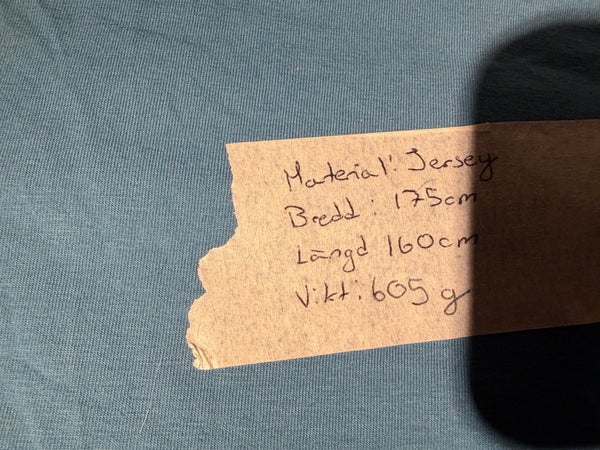 Material: Jersey
Bredd: 175cm
Längd 160cm
Vikt: 605 g